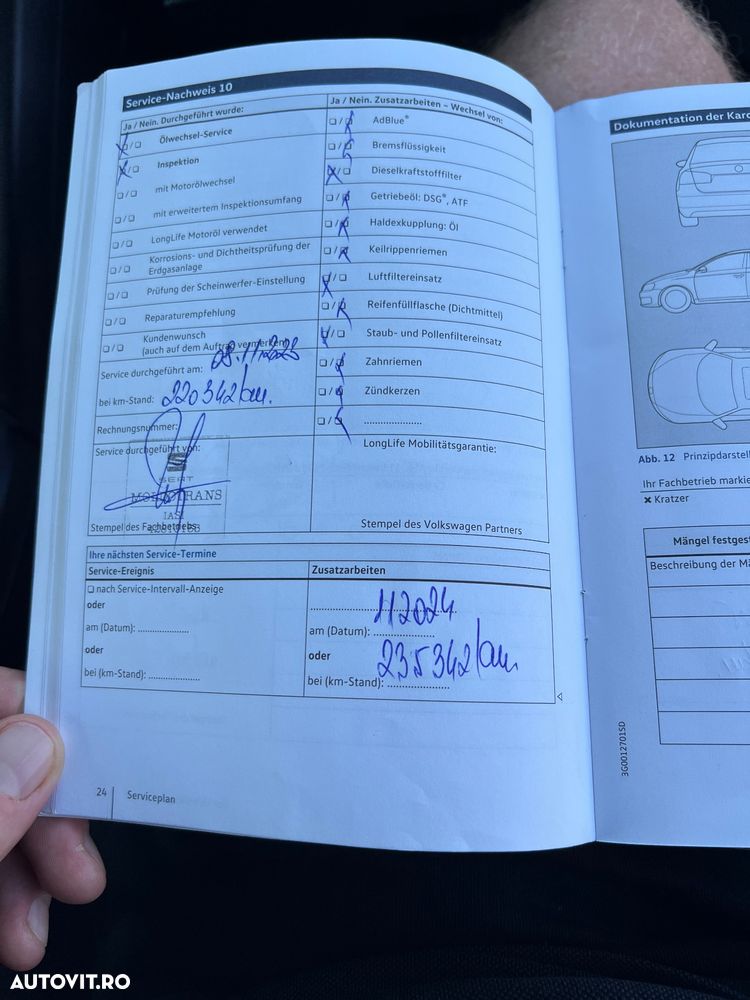 Service-Nachweis 10
Ja / Nein. Durchgeführt wurde:
Ölwechsel-Service
Inspektion
mit Motorölwechsel
mit erweitertem Inspektionsumfang
LongLife Motoröl verwendet
Korrosions- und Dichtheitsprüfung der
Erdgasanlage
Prüfung der Scheinwerfer-Einstellung
Reparaturempfehlung
Kundenwunsch
(auch auf dem Auftrag vermerken)
Service durchgeführt am: 08.11.2023
bei km-Stand: 220342 km.
Rechnungsnummer:
Service durchgeführt von:
SEAT
IASI
Stempel des Fachbetriebs
Ja / Nein. Zusatzarbeiten – Wechsel von:
AdBlue®
Bremsflüssigkeit
Dieselkraftstofffilter
Getriebeöl: DSG®, ATF
Haldexkupplung: Öl
Keilrippenriemen
Luftfiltereinsatz
Reifenfüllflasche (Dichtmittel)
Staub- und Pollenfiltereinsatz
Zahnriemen
Zündkerzen
....................
LongLife Mobilitätsgarantie:
Stempel des Volkswagen Partners
Ihre nächsten Service-Termine
Service-Ereignis
nach Service-Intervall-Anzeige
oder
am (Datum): .................
oder
bei (km-Stand): .................
Zusatzarbeiten
11 2024
am (Datum): ....................
oder
235342 km
bei (km-Stand): ....................
24 Serviceplan
Dokumentation der Karo
Abb. 12 Prinzipdarstell
Ihr Fachbetrieb markie
✖ Kratzer
Mängel festgest
Beschreibung der Mä
3G0012701SD
AUTOVIT.RO